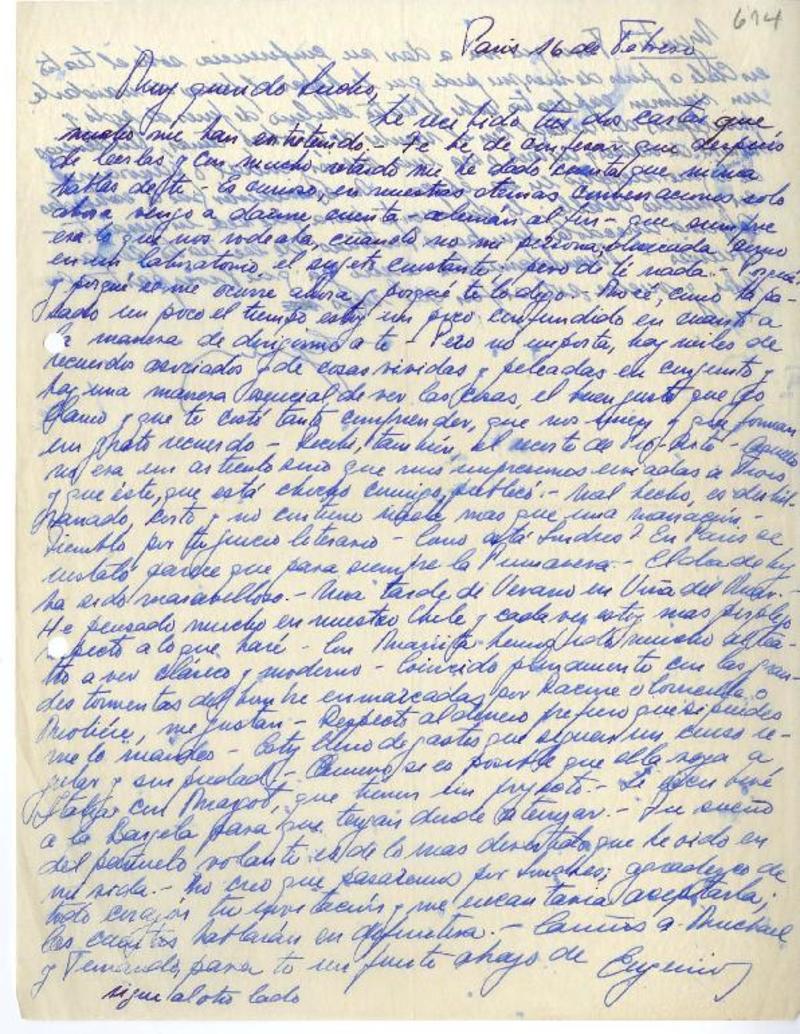 614
Paris 16 de Febrero
Muy querido Lucho,
he recibido tus dos cartas que
mucho me han entretenido.- Te he de confesar que después
de leerlas y con mucho retardo me he dado cuenta que nunca
hablas de ti.- Es curioso, en nuestras eternas conversaciones solo
ahora vengo a darme cuenta - alemán al fin - que siempre
era lo que nos rodeaba, cuando no mi persona, como
en un laboratorio, el sujeto constante; pero de ti nada.- Porqué?
y porqué se me ocurre ahora y porqué te lo digo.- No sé, como ha pa-
sado un poco el tiempo estoy un poco confundido en cuanto a
la manera de dirigirme a ti - Pero no importa, hay miles de
recuerdos asociados y de cosas vividas y peleadas en conjunto y
hay una manera especial de ver las cosas, el buen gusto que yo
llamo y que te costó tanto comprender, que nos unen y que forman
un grato recuerdo - Recibí, también, el recorte de - Aquello
no era un artículo sino que mis impresiones enviadas a
y que éste, que está chocho conmigo, publicó.- Mal hecho, es deshil-
vanado, corto y no contiene nada mas que una narración.-
Tiemblo por tu juicio literario - Como está Londres? En Paris se
instaló parece que para siempre la Primavera.- El día de hoy
ha sido maravilloso.- Una tarde de Verano en Viña del Mar.-
He pensado mucho en nuestro Chile y cada vez estoy mas perplejo
respecto a lo que haré - Con hemos ido mucho al tea-
tro a ver clásico y moderno - Coincido plenamente con las gran-
des tormentas del hombre enmarcadas por Racine o Corneille o
Molière, me gustan - Respecto al dinero prefiero que si puedes
me lo mandes - Estoy lleno de gastos que siguen un curso re-
gular y sin piedad.- es posible que ella vaya a
Italia con Margot, que tienen un proyecto.-
a la para que tengas donde atenerte.- Tu sueño
del pañuelo volante es de lo mas divertido que he oido en
mi vida.- No creo que pasaremos por Londres; agradezco de
todo corazón tu invitación y me encantaria aceptarla;
las cuentas hablarán en definitiva.- Cariños a
y Fernando, para ti un fuerte abrazo de Eugenio
sigue al otro lado